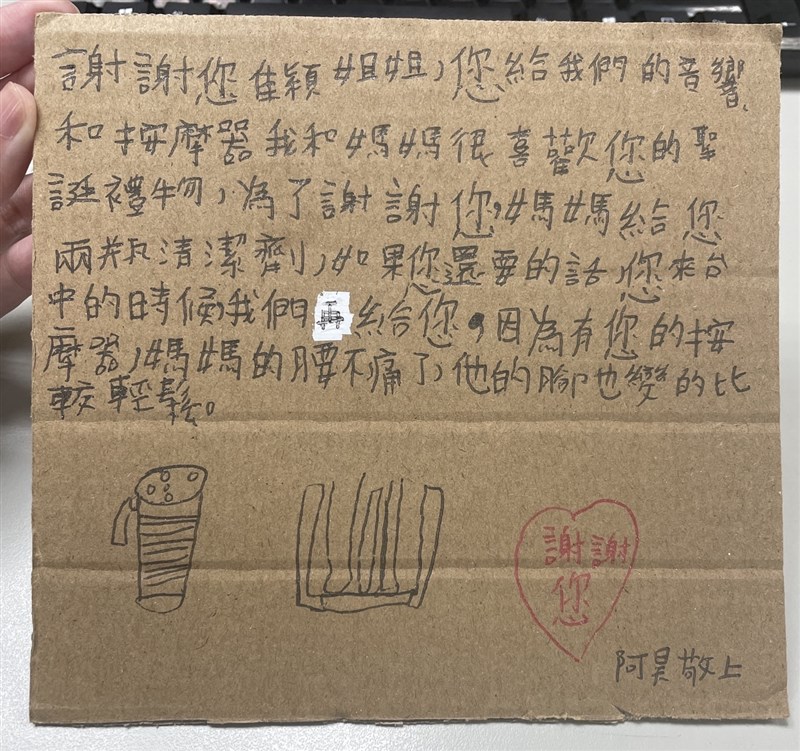 謝謝您隹穎姐姐,您給我們的音響、
和按摩器我和媽媽很喜歡您的聖
誕禮物,為了謝謝您,媽媽給您
兩瓶清潔劑,如果您還要的話,您來台
中的時候我們再給您,因為有您的按
摩器,媽媽的腰不痛了,他的腳也變的比
較輕鬆。
謝謝
您
阿昊敬上